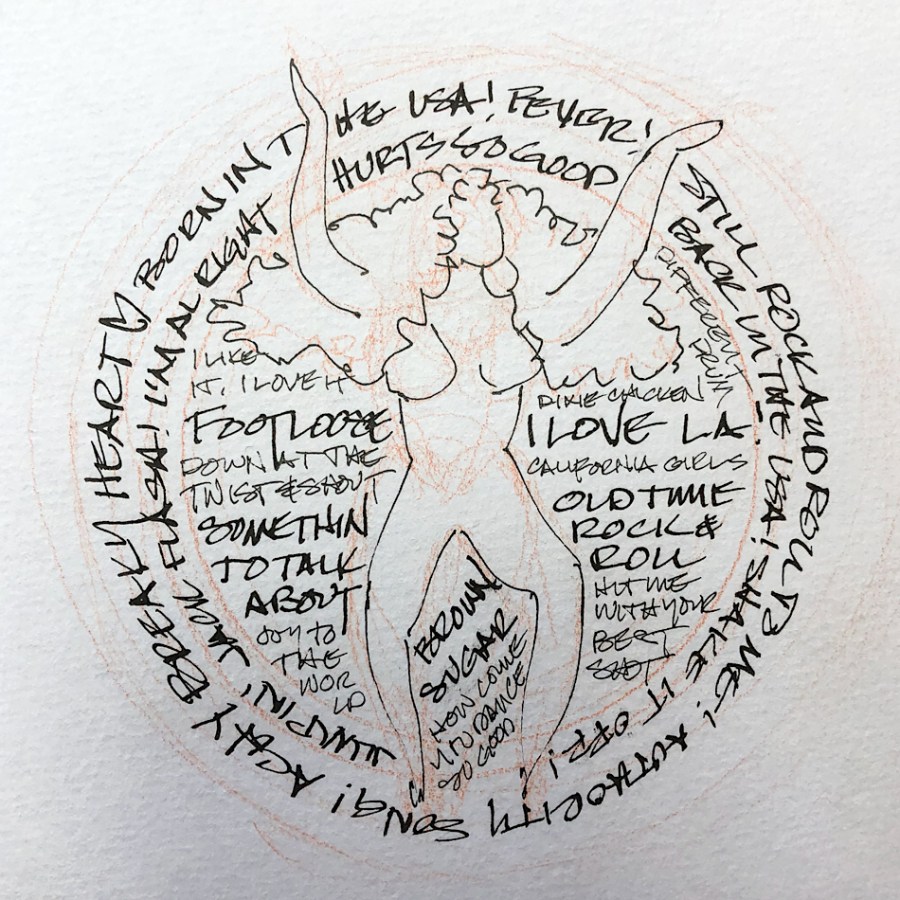 BORN IN THE USA! FEVER! STILL ROCK AND ROLL TO ME! AUTHORITY SONG! ACHY BREAKY HEART
HURTS SO GOOD
BACK IN THE USA! SHAKE IT OFF!
JUMPIN' JACK FLASH! I'M ALRIGHT
I LIKE
IT, I LOVE IT
FOOTLOOSE
DOWN AT THE
TWIST & SHOUT
SOMETHIN'
TO TALK
ABOUT
JOY TO
THE
WOR
LD
DIFFERENT
DRUM
DIXIE CHICKEN
I LOVE LA
CALIFORNIA GIRLS
OLD TIME
ROCK &
ROLL
HIT ME
WITH YOUR
BEST
SHOT
BROWN
SUGAR
HOW COME
YOU DANCE
SO GOOD